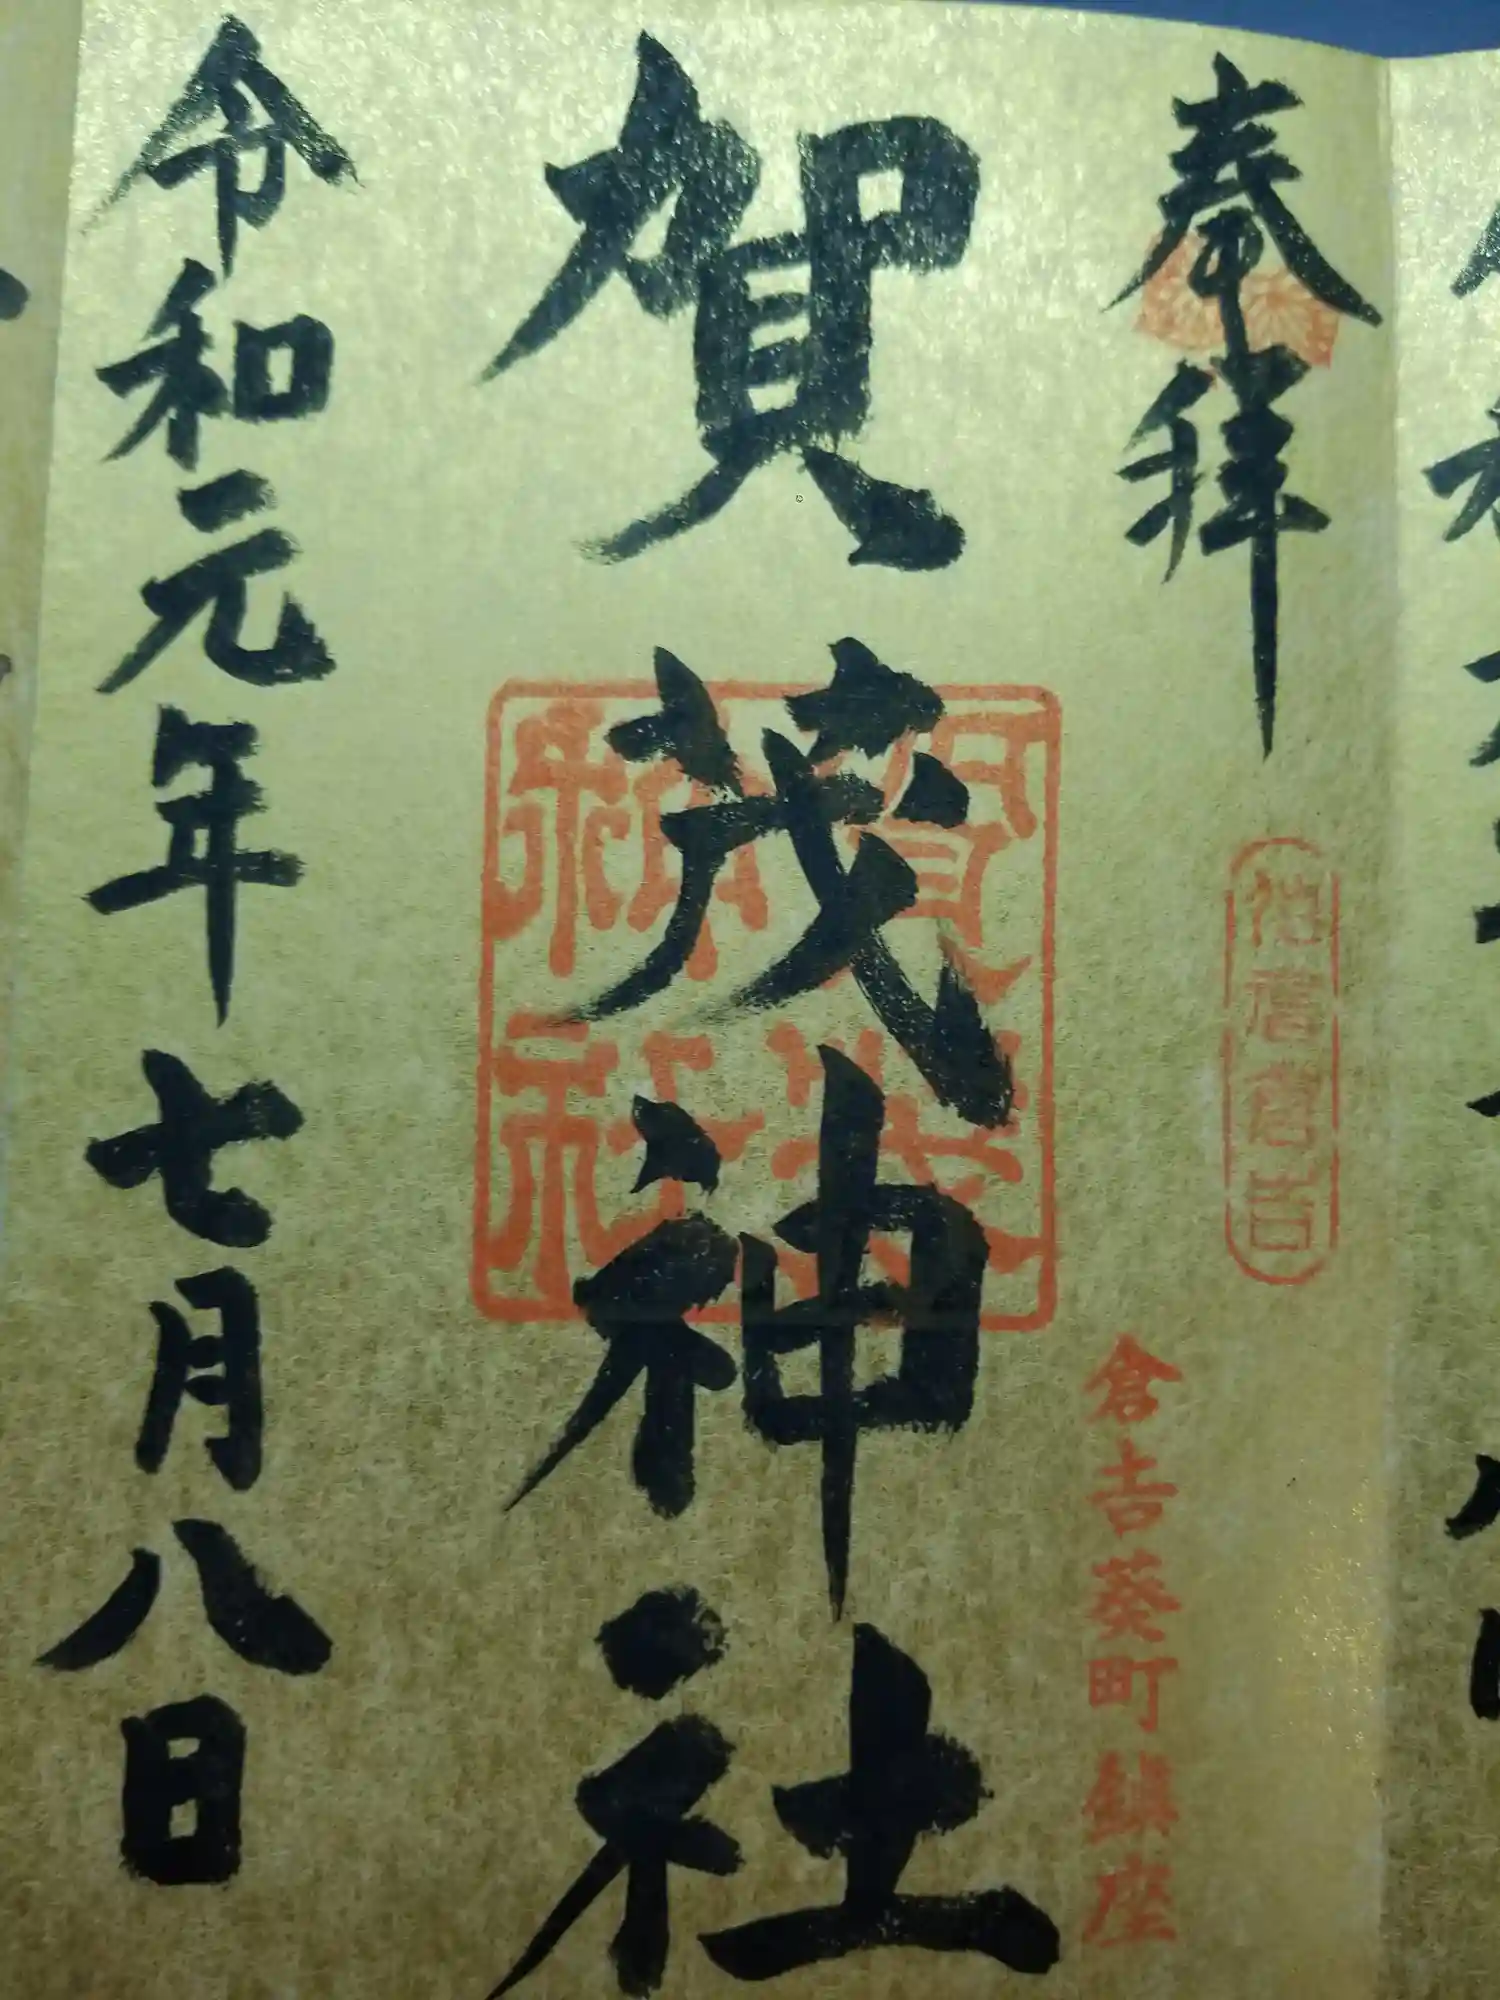 奉拝
伯耆倉吉
倉吉葵町鎮座
賀茂神社
賀茂
神社
令和元年七月八日